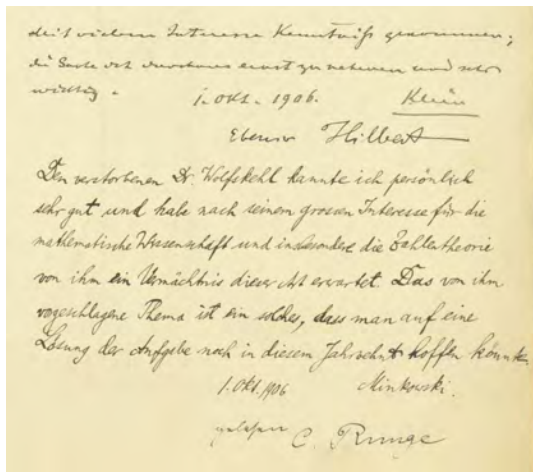 Mit vielem Interesse Kenntniß genommen;
die Sache ist durchaus ernst zu nehmen und sehr
wichtig.
1. Okt. 1906. Klein
Ebenso Hilbert
Den verstorbenen Dr. Wolfskehl kannte ich persönlich
sehr gut und habe nach seinem grossen Interesse für die
mathematische Wissenschaft und insbesondere die Zahlentheorie
von ihm ein Vermächtnis dieser Art erwartet. Das von ihm
vorgeschlagene Thema ist ein solches, dass man auf eine
Lösung der Aufgabe noch in diesem Jahrzehnt hoffen könnte.
1. Okt. 1906 Minkowski.
gelesen C. Runge